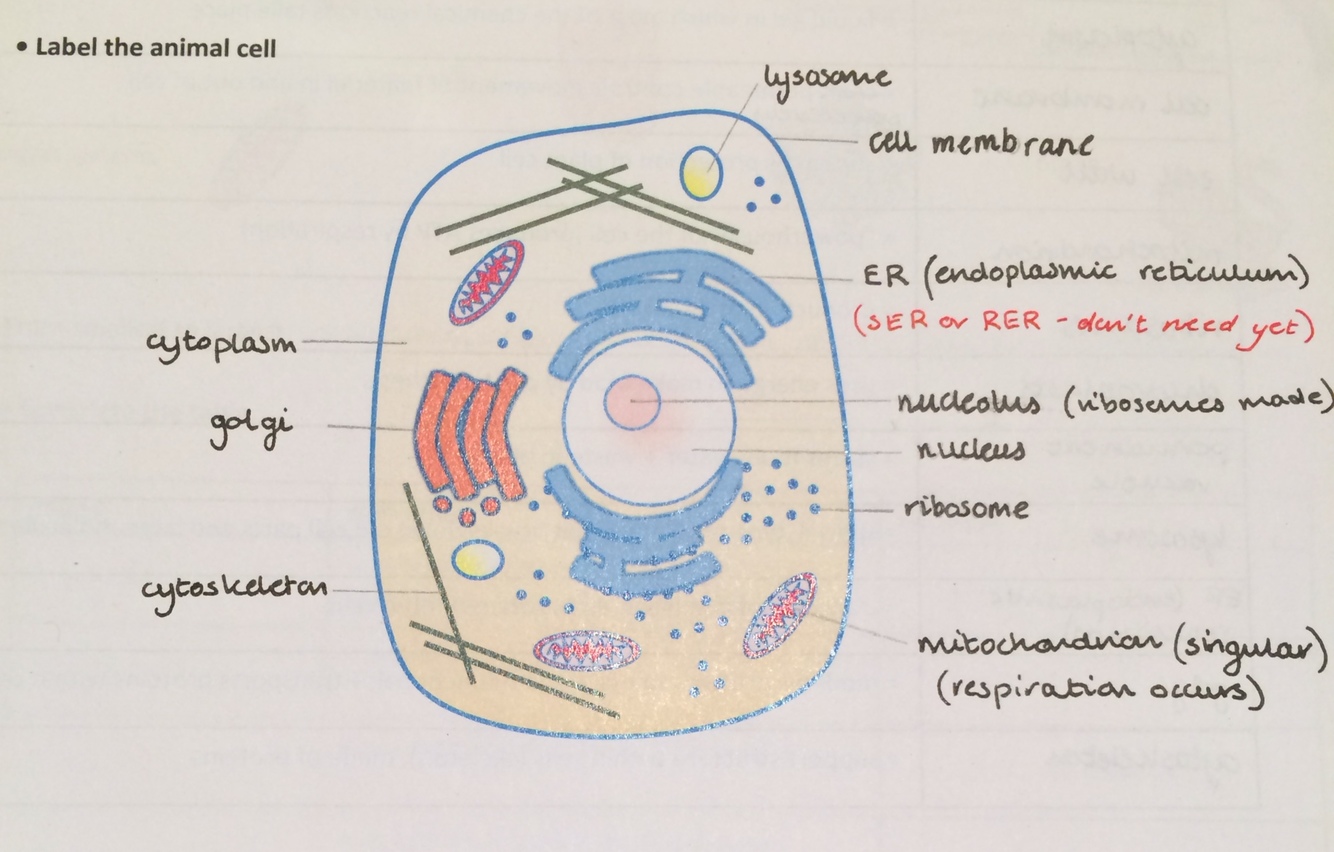 • Label the animal cell
lysosome
cell membrane
ER (endoplasmic reticulum)
(SER or RER - don't need yet)
cytoplasm
golgi
nucleolus (ribosomes made)
nucleus
ribosome
cytoskeleton
mitochondrion (singular)
(respiration occurs)